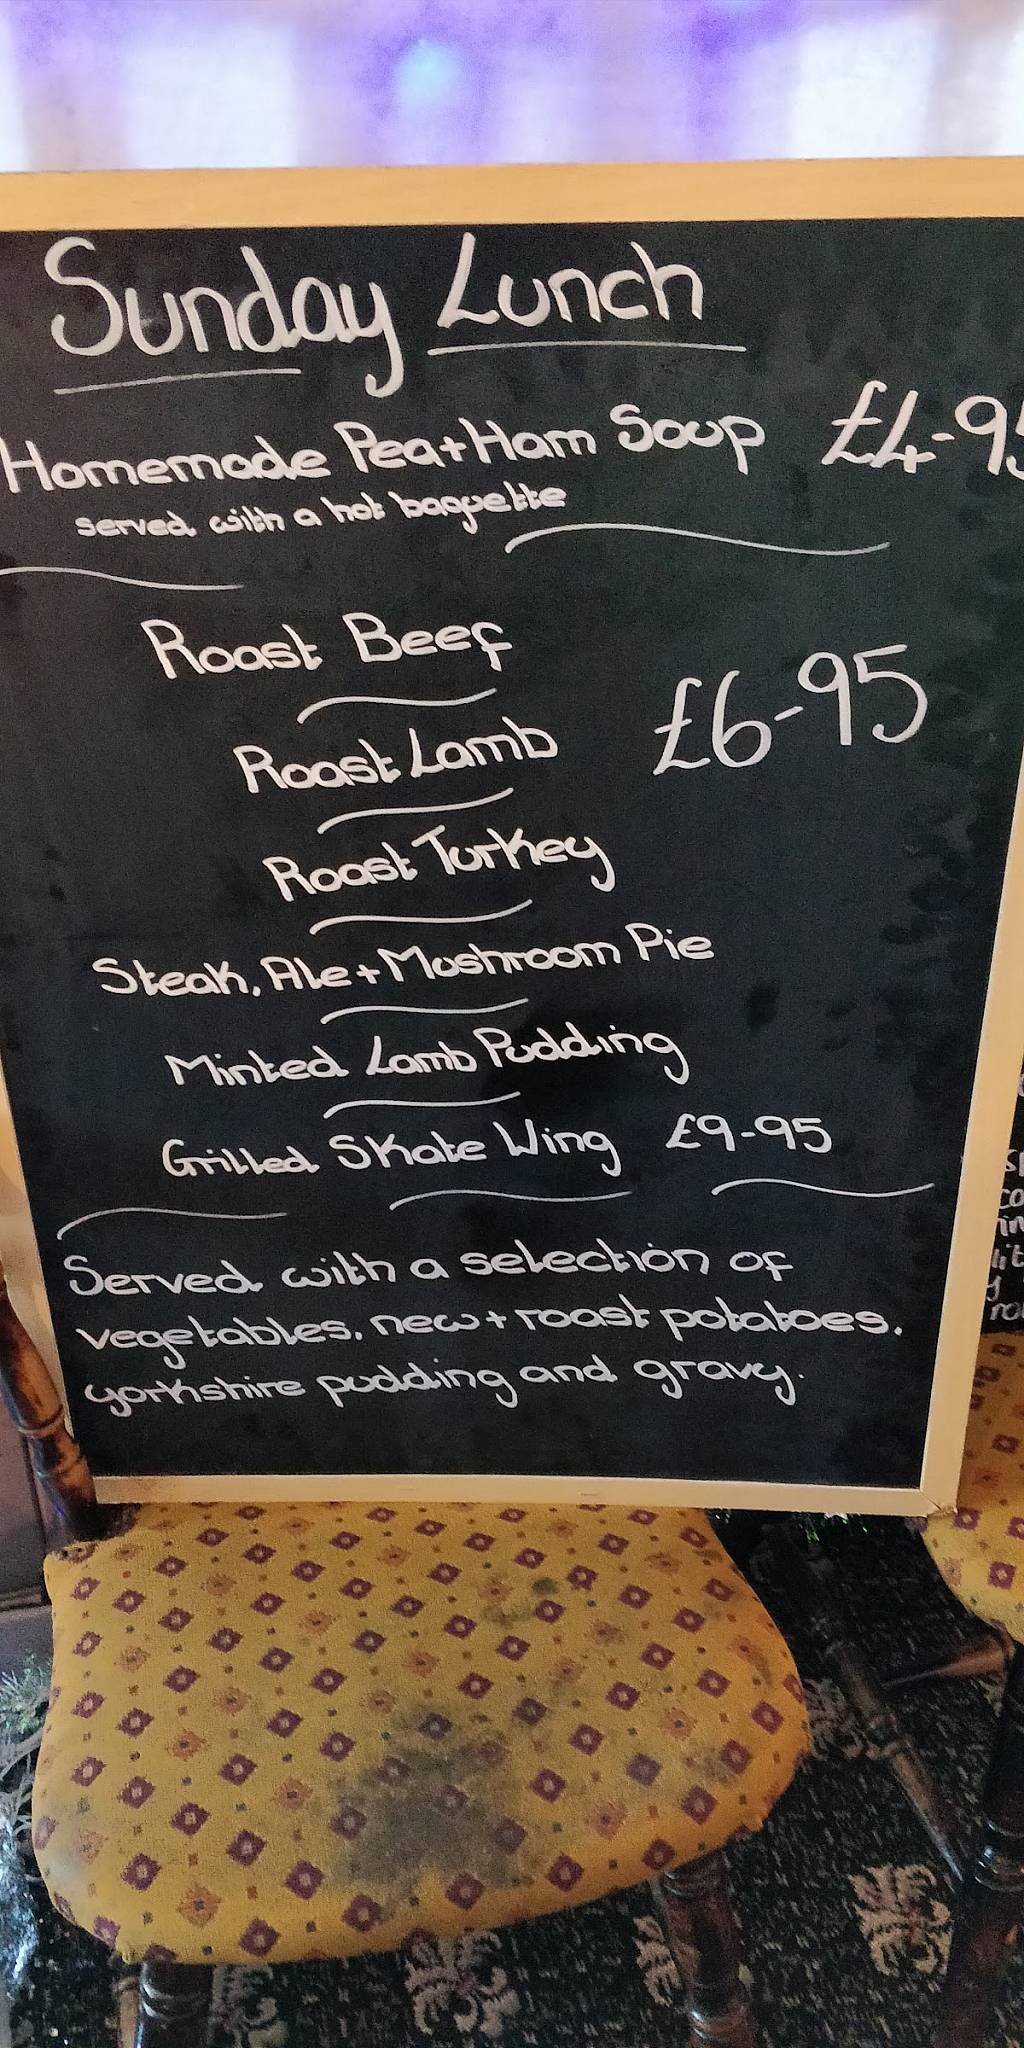 Sunday Lunch
Homemade Pea + Ham Soup £4-95
served with a hot baguette
Roast Beef
£6-95
Roast Lamb
Roast Turkey
Steak, Ale + Mushroom Pie
Minted Lamb Pudding
Grilled Skate Wing £9-95
Served with a selection of
vegetables, new + roast potatoes,
yorkshire pudding and gravy.